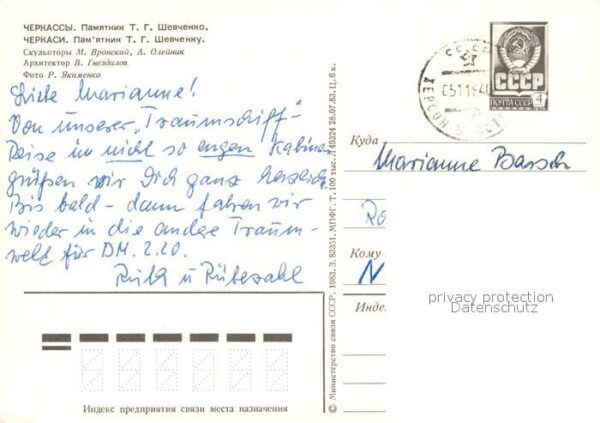 ЧЕРКАССЫ. Памятник Т. Г. Шевченко.
ЧЕРКАСИ. Пам'ятник Т. Г. Шевченку.
Скульпторы М. Вронский, А. Олейник
Архитектор В. Гнездилов
Фото Р. Якименко
Liebe Marianne!
Von unserer „Traumschiff"-
Reise in nicht so engen Kabinen
grüßen wir Dich ganz herzlich.
Bis bald - dann fahren wir
wieder in die andere Traum-
welt für DM. 2.20.
Ruth u Rübezahl
Индекс предприятия связи места назначения
© Министерство связи СССР. 1983. З. 83351. МПФГ. Т. 100 тыс. 28.07.83. 11. 6 к.
СССР
ПОЧТА СССР
4
Куда
Marianne
Ro
Кому
N
Индекс
privacy protection
Datenschutz